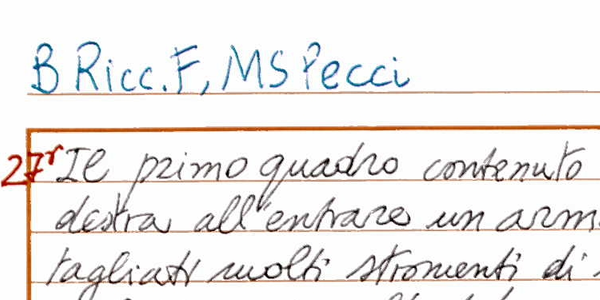 B Ricc. F, MS Pecci
27r Il primo quadro contenuto
destra all'entrare un arm
tagliati molti stromenti di